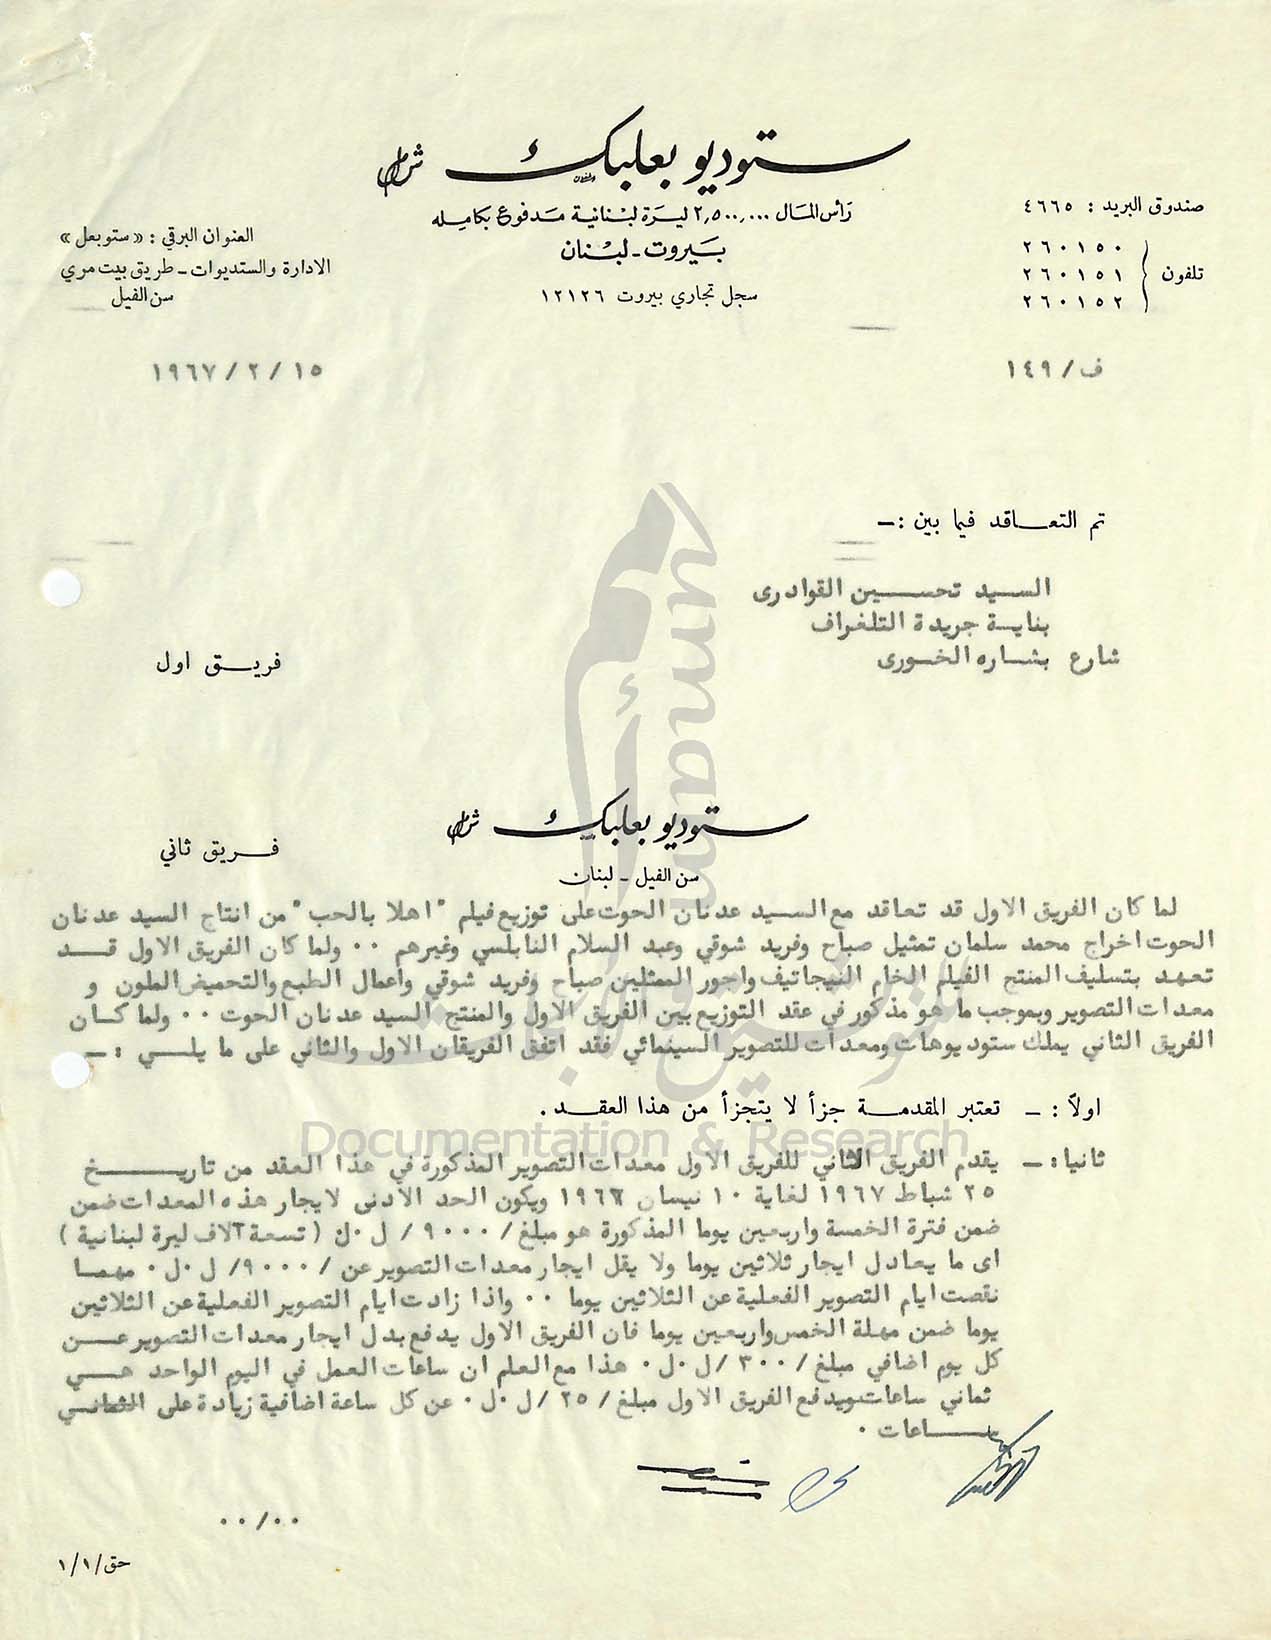 ستوديو بعلبك ش.م.ل
رأس المال ٢,٥٠٠,٠٠٠ ليرة لبنانية مدفوع بكامله
بيروت - لبنان
سجل تجاري بيروت ١٢١٢٦
صندوق البريد : ٤٦٦٥
تلفون
٢٦٠١٥٠
٢٦٠١٥١
٢٦٠١٥٢
العنوان البرقي : «ستوبعل»
الادارة والستديوات - طريق بيت مري
سن الفيل
ف/١٤٩
١٩٦٧/٢/١٥
تم التعاقد فيما بين : -
السيد تحسين القوادرى
بناية جريدة التلغراف
شارع بشاره الخورى
فريق اول
ستوديو بعلبك ش.م.ل
سن الفيل - لبنان
فريق ثاني
لما كان الفريق الاول قد تعاقد مع السيد عدنان الحوت على توزيع فيلم "اهلا بالحب" من انتاج السيد عدنان
الحوت اخراج محمد سلمان تمثيل صباح وفريد شوقي وعبد السلام النابلسي وغيرهم ٠٠ ولما كان الفريق الاول قد
تعهد بتسليف المنتج الفيلم الخام النيجاتيف واجور الممثلين صباح وفريد شوقي واعمال الطبع والتحميض الملون و
معدات التصوير وبموجب ما هو مذكور في عقد التوزيع بين الفريق الاول والمنتج السيد عدنان الحوت ٠٠ ولما كان
الفريق الثاني يملك ستوديوهات ومعدات للتصوير السينمائي فقد اتفق الفريقان الاول والثاني على ما يلي : -
اولاً : - تعتبر المقدمة جزأ لا يتجزأ من هذا العقد .
ثانيا: - يقدم الفريق الثاني للفريق الاول معدات التصوير المذكورة في هذا العقد من تاريخ
٢٥ شباط ١٩٦٧ لغاية ١٠ نيسان ١٩٦٧ ويكون الحد الادنى لايجار هذه المعدات ضمن
ضمن فترة الخمسة واربعين يوما المذكورة هو مبلغ /٩٠٠٠/ ل٠ل٠ (تسعة آلاف ليرة لبنانية)
اى ما يعادل ايجار ثلاثين يوما ولا يقل ايجار معدات التصوير عن /٩٠٠٠/ ل٠ل٠ مهما
نقصت ايام التصوير الفعلية عن الثلاثين يوما ٠٠ واذا زادت ايام التصوير الفعلية عن الثلاثين
يوما ضمن مهلة الخمس واربعين يوما فان الفريق الاول يدفع بدل ايجار معدات التصوير عن
كل يوم اضافي مبلغ /٣٠٠/ ل٠ل٠ هذا مع العلم ان ساعات العمل في اليوم الواحد هي
ثماني ساعات ويدفع الفريق الاول مبلغ /٢٥/ ل٠ل٠ عن كل ساعة اضافية زيادة على الثماني
ساعات ٠
٠٠/٠٠
حق/١/١
umam
أمم
للتوثيق والأبحاث
Documentation & Research